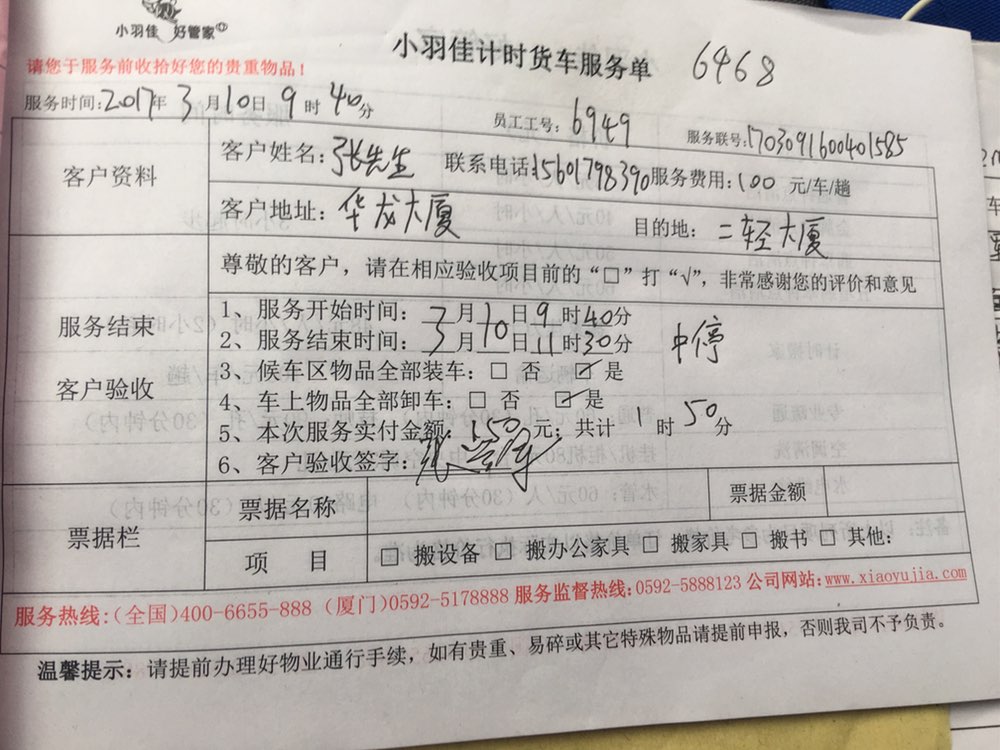 小羽佳 好管家
小羽佳计时货车服务单 6468
请您于服务前收拾好您的贵重物品！
服务时间:2017年3月10日9时40分 员工工号:6949 服务联号:1703091600401585
客户资料 客户姓名:张先生 联系电话:15601798390 服务费用:100元/车/趟
客户地址:华龙大厦 目的地:二轻大厦
尊敬的客户，请在相应验收项目前的“□”打“√”，非常感谢您的评价和意见
服务结束
客户验收
1、服务开始时间:3月10日9时40分
2、服务结束时间:3月10日11时30分 中停
3、候车区物品全部装车:□ 否 ☑ 是
4、车上物品全部卸车:□ 否 ☑ 是
5、本次服务实付金额:150元;共计1时50分
6、客户验收签字:
票据栏 票据名称 票据金额
项 目 □ 搬设备 □ 搬办公家具 □ 搬家具 □ 搬书 □ 其他:
服务热线:(全国)400-6655-888 (厦门)0592-5178888 服务监督热线:0592-5888123 公司网站:www.xiaoyujia.com
温馨提示: 请提前办理好物业通行手续，如有贵重、易碎或其它特殊物品请提前申报，否则我司不予负责。